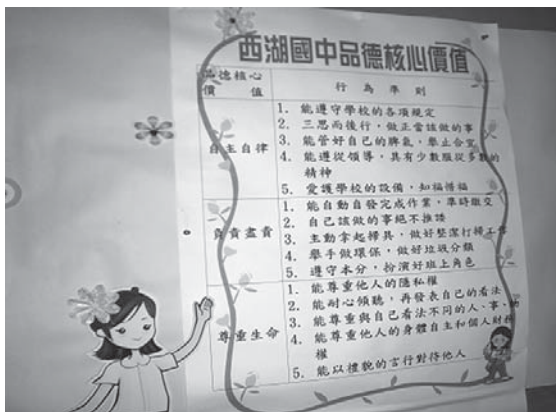 西湖國中品德核心價值
品德核心
價值
行為準則
自主自律
1. 能遵守學校的各項規定
2. 三思而後行，做正當該做的事
3. 能管好自己的脾氣，舉止合宜
4. 能遵從領導，具有少數服從多數的
精神
5. 愛護學校的設備，知福惜福
負責盡責
1. 能自動自發完成作業，準時繳交
2. 自己該做的事絕不推諉
3. 主動拿起掃具，做好整潔打掃工作
4. 舉手做環保，做好垃圾分類
5. 遵守本分，扮演好班上角色
尊重生命
1. 能尊重他人的隱私權
2. 能耐心傾聽，再發表自己的看法
3. 能尊重與自己看法不同的人、事、物
4. 能尊重他人的身體自主和個人財務
權
5. 能以禮貌的言行對待他人